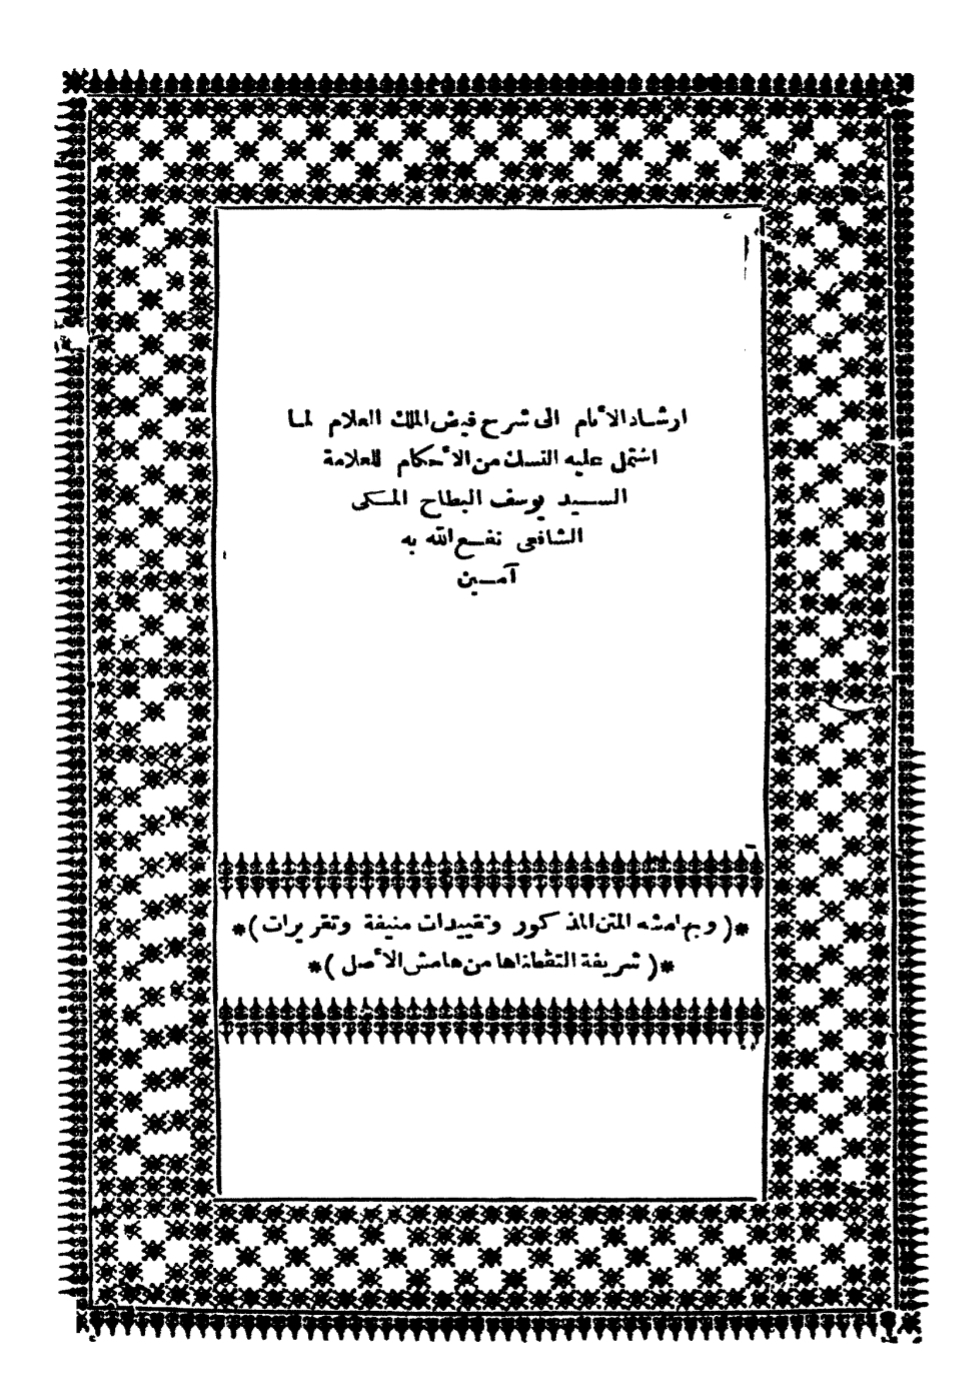 ارشاد الأنام الى شرح فيض الملك العلام لما
اشتمل عليه النسك من الأحكام للعلامة
السيد يوسف البطاح المكى
الشافعى نفع الله به
آمين
*(وبهامشه المتن المذكور وتقييدات منيفة وتقريرات)*
*(شريفة التقطناها من هامش الأصل)*